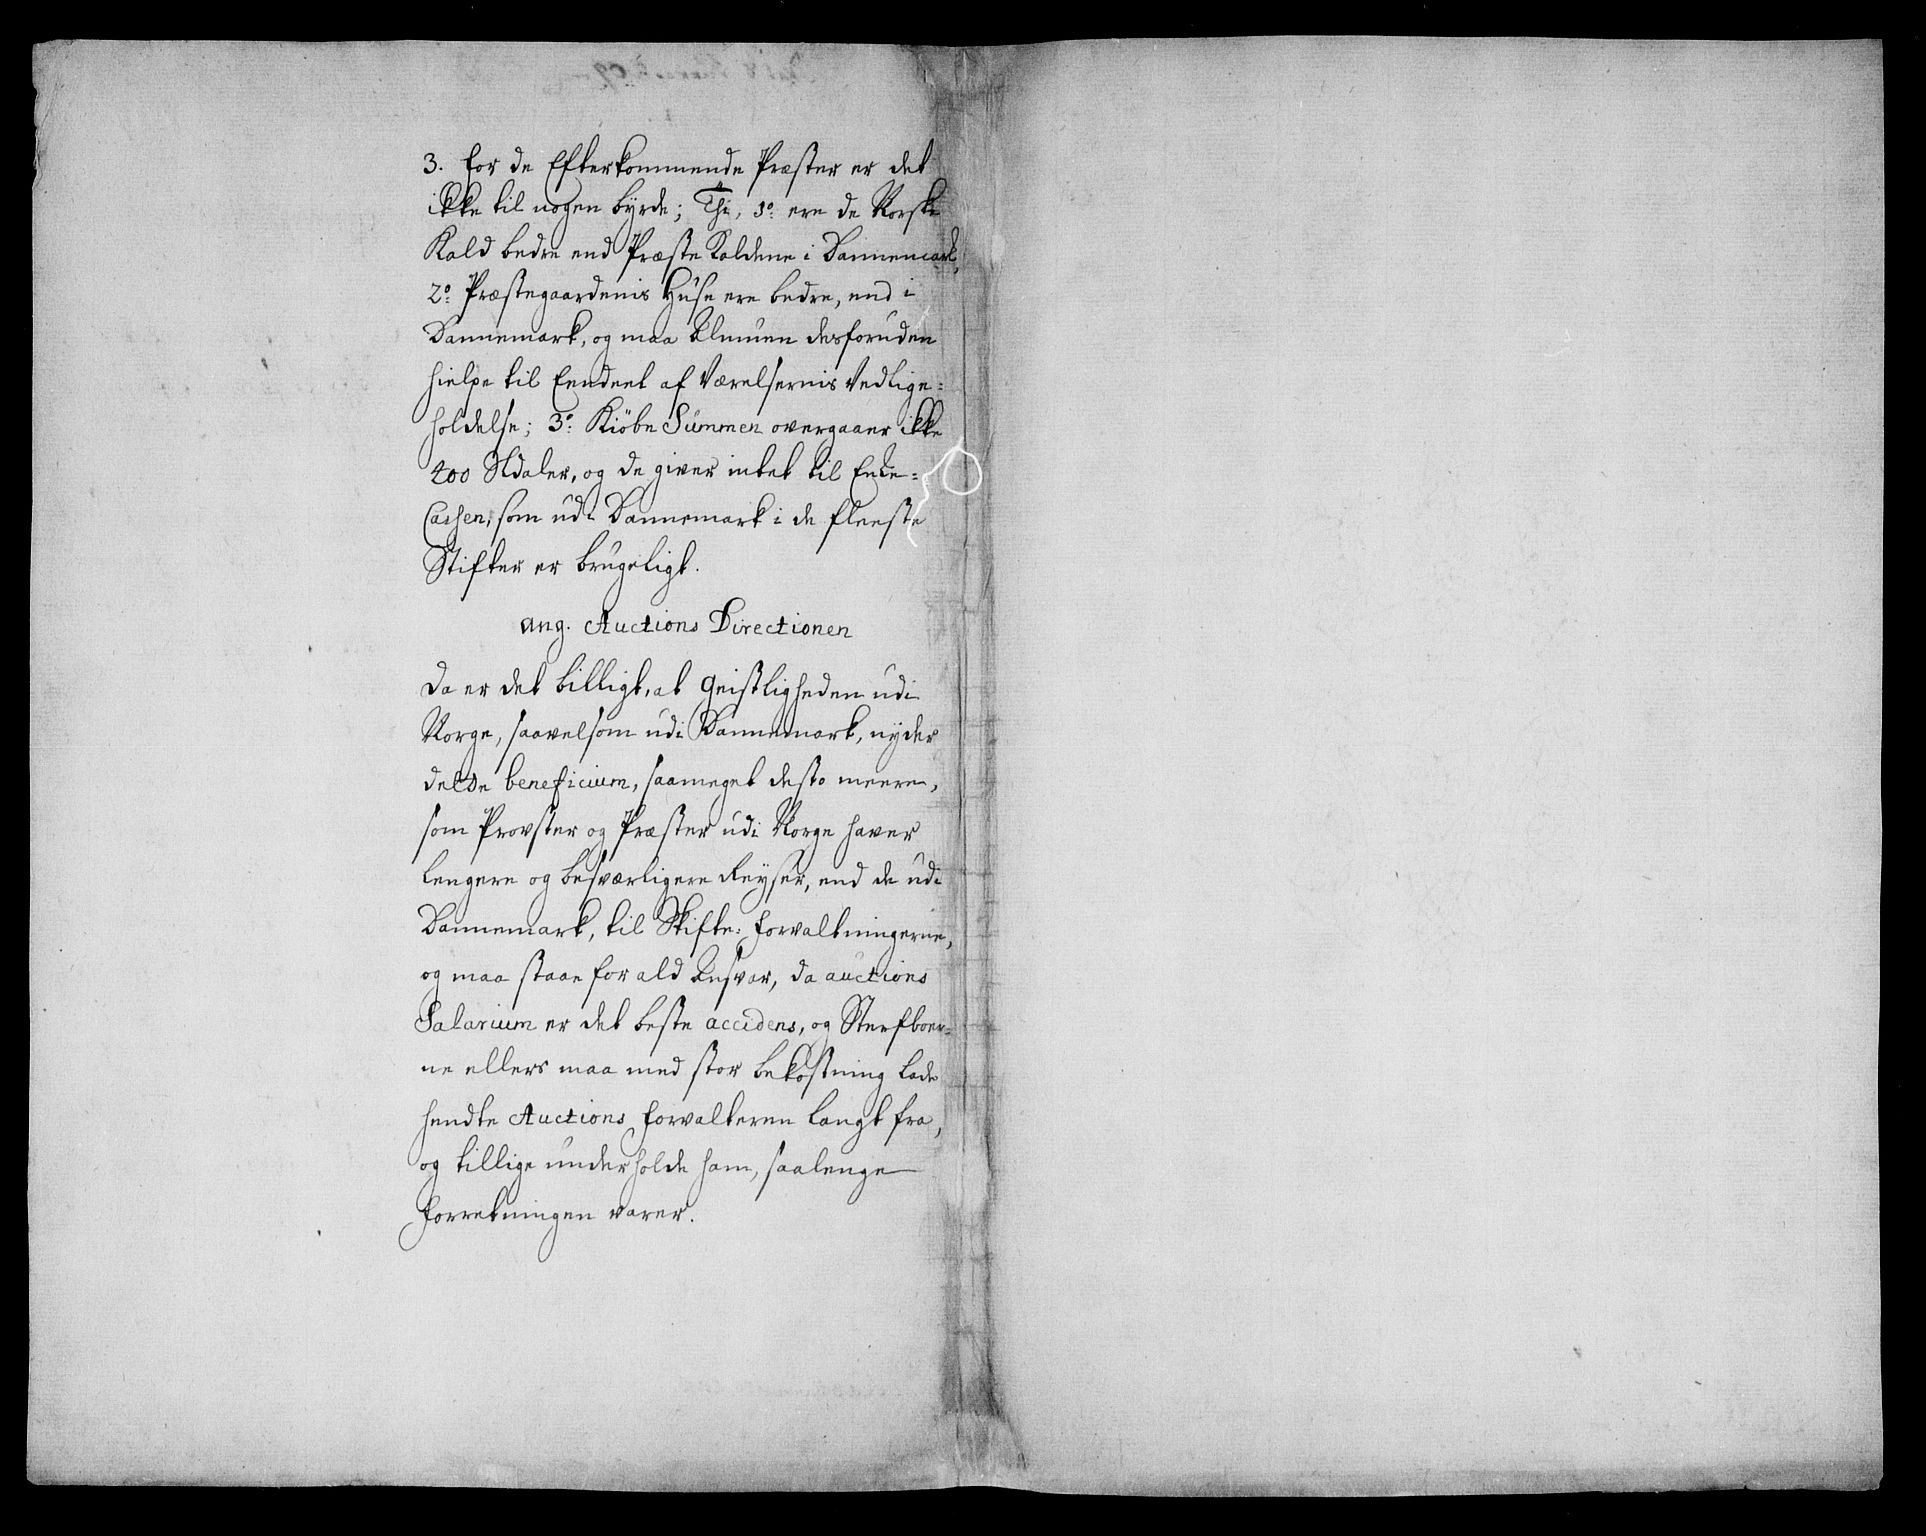 3. for de Efterkommende Præster er det
ikke til nogen byrde; Thi, 1º ere de Norske
Kald bedre end Præste Kaldene i Dannemark,
2º Præstegaardenis Huse ere bedre, end i
Dannemark, og maa Almuen desforuden
hielpe til Eendeel af Værelsernis Vedlige=
holdelse; 3º Kiöbe Summen overgaaer ikke
200 Rdaler, og de giver intet til Enke=
Cassen, som udi Dannemark i de fleeste
Stifter er brugeligt.
ang. Auctions Directionen
Da er det billigt, at Geistligheden udi
Norge, saavelsom udi Dannemark, nyder
dette beneficium, saameget desto meere,
som Provster og Præster udi Norge haver
lengere og besværligere Reyser, end de udi
Dannemark, til Skifte: forvaltningerne,
og maa staae for ald Ansvar, da auctions
Salarium er det beste accidens, og Sterfboer=
ne ellers maa med stor bekostning lade
hendte Auctions forvalteren langt fra,
og tillige underholde ham, saalenge
forretningen varer.